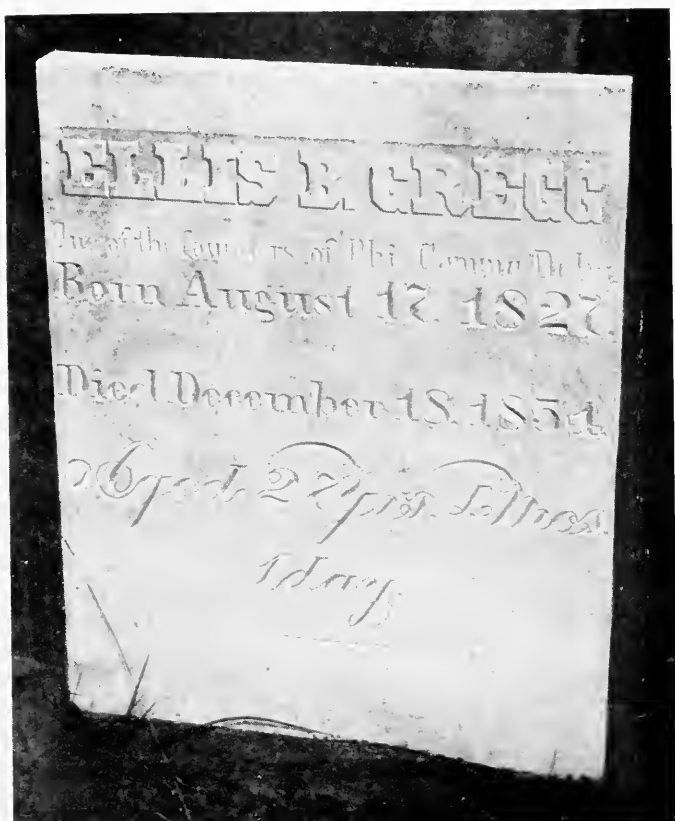 ELLIS B. GREGG
One of the founders of Phi Gamma Delta
Born August 17. 1827.
Died December 18. 1854
Aged 27 yrs. 4 mos.
1 day.